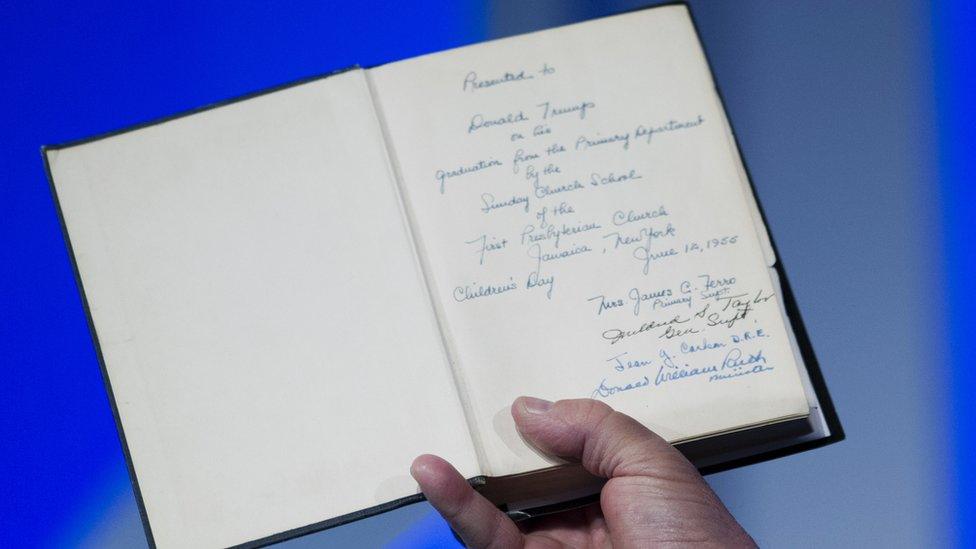 Presented to
Donald Trump
on his
graduation from the Primary Department
by the
Sunday Church School
of the
First Presbyterian Church
Jamaica, New York
Children's Day June 12, 1955
Mrs. James C. Ferro
Primary Supt.
S. Taylor
Gen. Supt.
Jean G. D.R.E.
Donald William
Minister